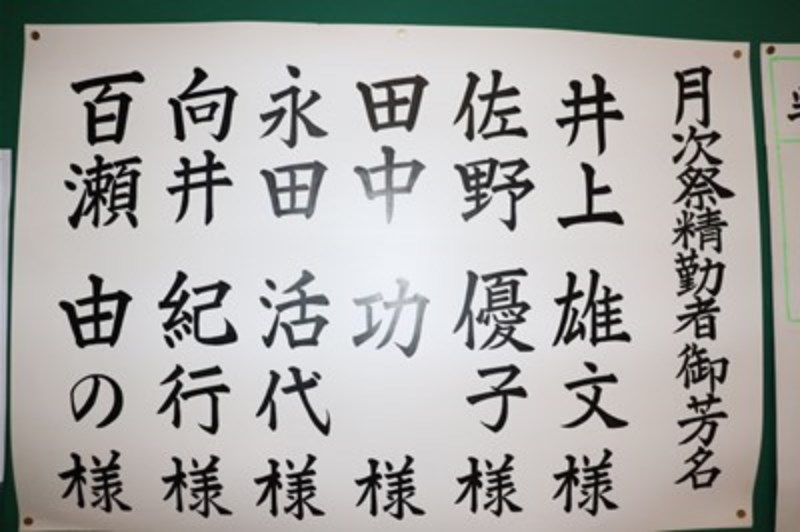 月次祭精勤者御芳名
井上 雄文 様
佐野 優子 様
田中 功 様
永田 活代 様
向井 紀行 様
百瀬 由の 様